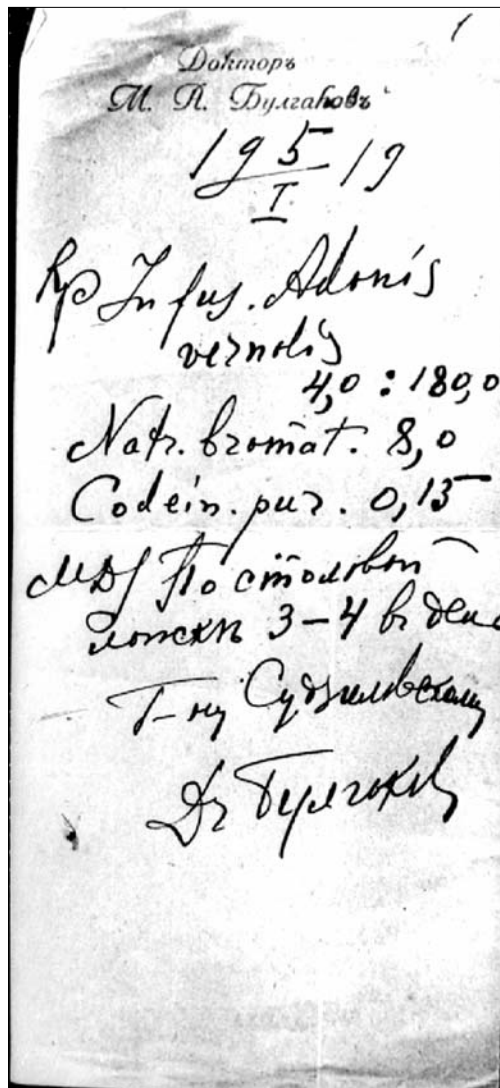 Докторъ
М. А. Булгаковъ
19 5/I 19
Rp Infus. Adonis
vernalis
4,0 : 180,0
Natr. bromat. 8,0
Codein. pur. 0,15
MDS По столовой
ложкѣ 3–4 въ день
Г-ну Судзиловскому
Др Булгаковъ